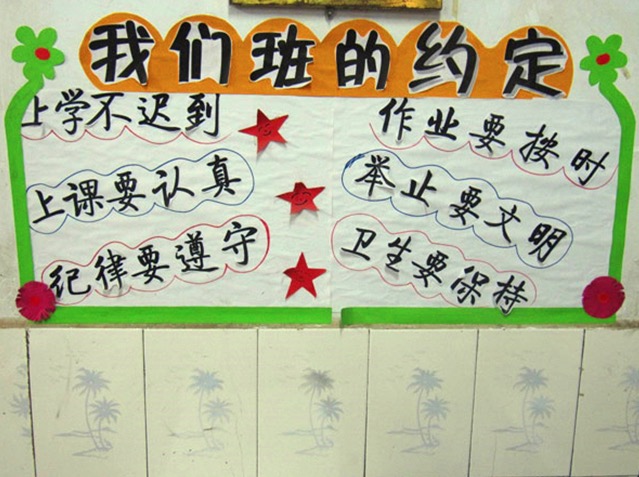 我们班的约定
上学不迟到
上课要认真
纪律要遵守
作业要按时
举止要文明
卫生要保持